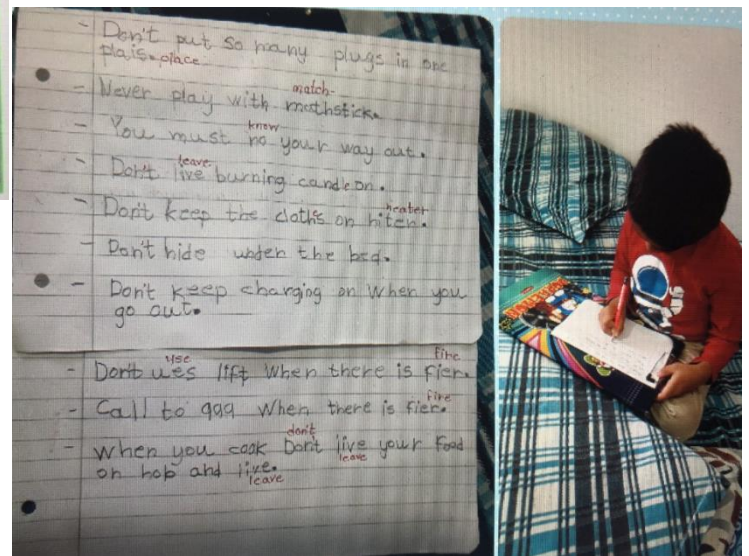 - Don't put so many plugs in one
plais. place
match-
- Never play with mathstick.
know
- You must no your way out.
leave
- Don't live burning candle on.
heater
- Don't keep the cloths on hiter.
- Don't hide under the bed.
- Don't keep charging on when you
go out.
use fire
- Don't ues lift when there is fier.
fire
- Call to 999 when there is fier.
don't
- When you cook Don't live your food
leave
on hob and live.
leave